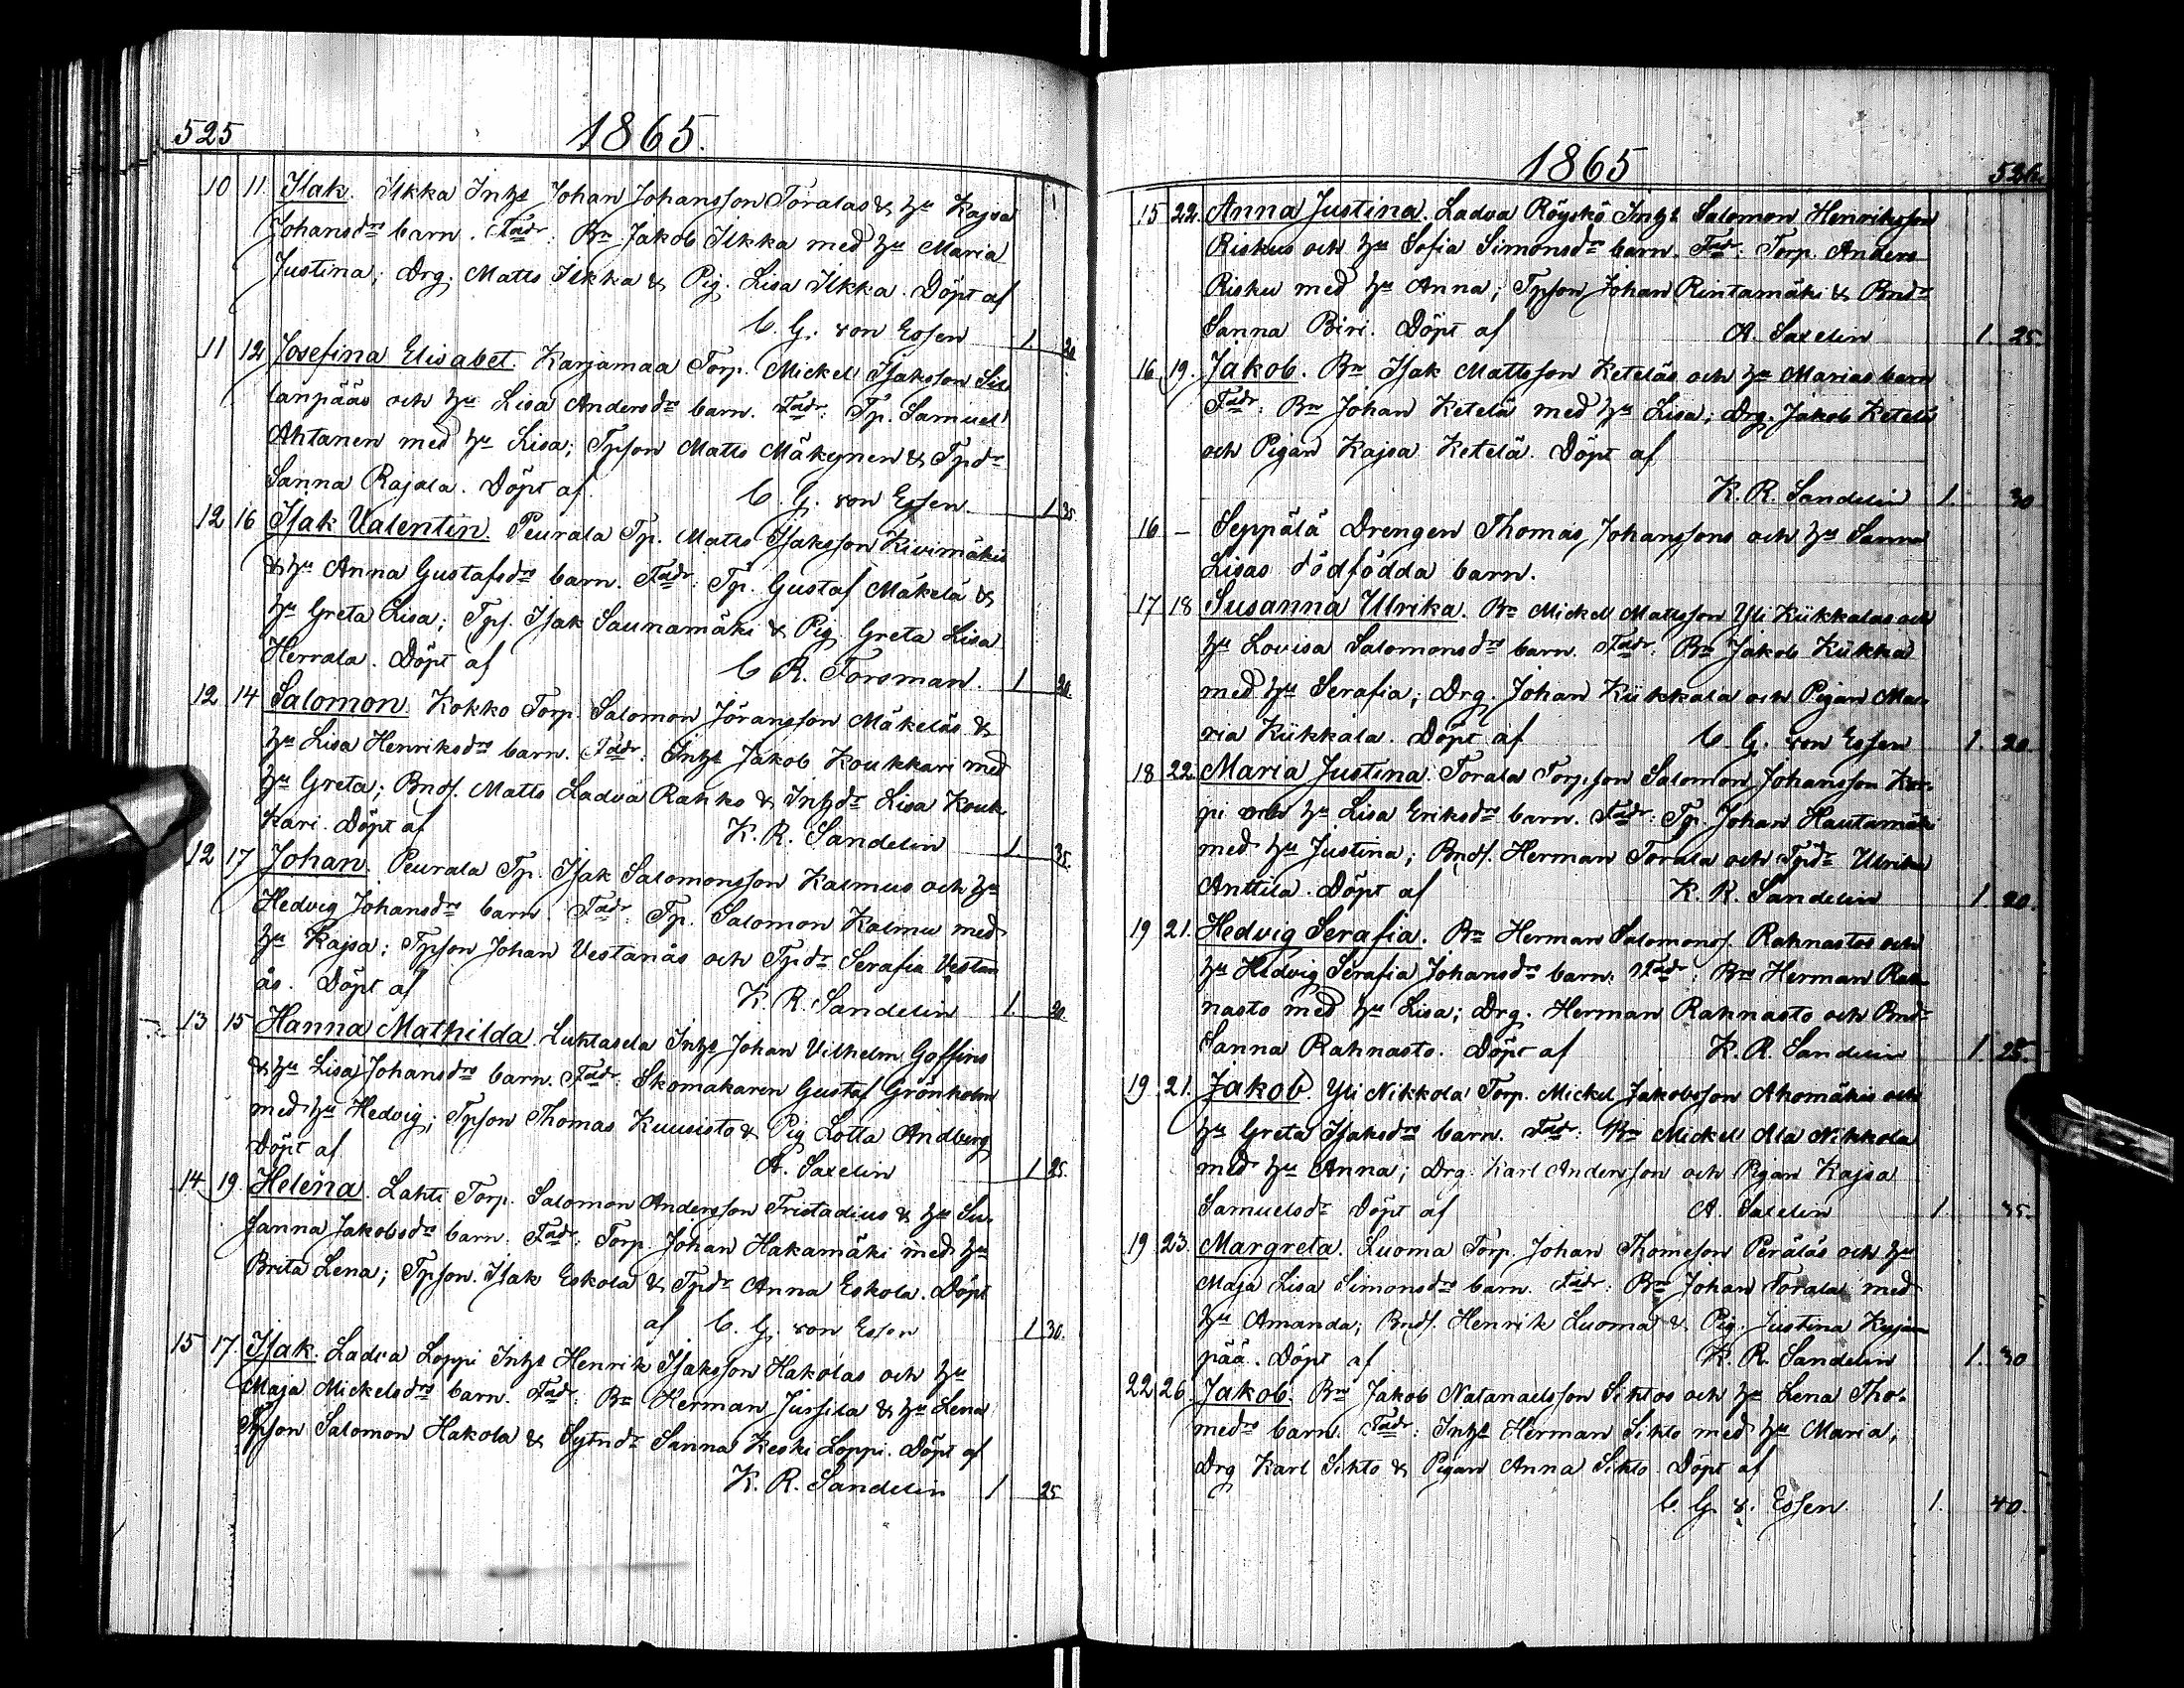 525 1865.
10 11. Isak. Ilkka Inhs Johan Johansson Toralas & hu Kajsa
Johansdrs barn. Fadr: Bn Jakob Ilkka med hu Maria
Justina; Drg. Matts Ilkka & Pig. Lisa Ilkka. Döpt af
C. G. von Essen 1 20.
11 12 Josefina Elisabet. Karjamaa Torp. Mickel Isaksson Sil
lanpääs och hu Lisa Andersdrs barn. Fadr: Tp. Samuel
Ahtanen med hu Lisa; Tpson Matts Mäkynen & Tpdr
Sanna Rajala. Döpt af C. G. von Essen. 1 35.
12 16 Isak Valentin. Peurala Tp. Matts Isaksson Kivimäkis
& hu Anna Gustafsdrs barn. Fadr: Tp. Gustaf Mäkelä &
hu Greta Lisa; Tps. Isak Saunamäki & Pig. Greta Lisa
Herrala. Döpt af C R. Forsman. 1 20.
12 14 Salomon. Kokko Torp. Salomon Jöransson Mäkeläs &
hu Lisa Henriksdrs barn. Fadr: Inhs Jakob Koukkari med
hu Greta; Bnds. Matts Ladva Rahko & Inhdr Lisa Kouk
kari. Döpt af K. R. Sandelin 1. 35.
12 17 Johan. Peurala Tp. Isak Salomonsson Kalmus och hu
Hedvig Johansdrs barn. Fadr: Tp. Salomon Kalmu med
hu Kajsa; Tpson Johan Vestanås och Tpdr Serafia Vestan
ås. Döpt af K. R. Sandelin 1. 20.
13 15 Hanna Mathilda. Luhtasela Inhs Johan Vilhelm Goffins
& hu Lisa Johansdrs barn. Fadr: Skomakaren Gustaf Grönholm
med hu Hedvig; Tpson Thomas Kuusisto & Pig Lotta Andberg
Döpt af A. Saxelin 1 25.
14 19. Helena. Lahti Torp. Salomon Andersson Fristadius & hu Su-
sanna Jakobsdrs barn. Fadr: Torp. Johan Hakamäki med hu
Brita Lena; Tpson. Isak Eskola & Tpdr Anna Eskola. Döpt
af C. G. von Essen 1 30.
15 17. Isak. Ladva Loppi Inhs Henrik Isaksson Hakolas och hu
Maja Mickelsdrs barn. Fadr: Bn Herman Jussila & hu Lena
Tpson Salomon Hakola & Sytndr Sanna Keski Loppi. Döpt af
K. R. Sandelin 1 25
1865 526.
15 22. Anna Justina. Ladva Röyskö Inhs Salomon Henriksson
Riskus och hu Sofia Simonsdrs barn. Fadr: Torp. Anders
Risku med hu Anna; Tpson Johan Rintamäki & Bndr
Sanna Biri. Döpt af A. Saxelin 1. 25.
16 19. Jakob. Bn Isak Mattsson Keteläs och hu Marias barn
Fadr: Bn Johan Ketelä med hu Lisa; Drg. Jakob Ketelä
och Pigan Kajsa Ketelä. Döpt af
K. R. Sandelin 1. 30
16 – Seppälä Drengen Thomas Johanssons och hu Sanna
Lisas dödfödda barn.
17 18 Susanna Ulrika. Bn Mickel Mattsson Yli Kükkalas och
hu Lovisa Salomonsdrs barn. Fadr: Bn Jakob Kükka
med hu Serafia; Drg. Johan Kükkala och Pigan Ma-
ria Kükkala. Döpt af C. G. von Essen 1. 20.
18 22. Maria Justina. Torala Torpson Salomon Johansson Kor-
pi och hu Lisa Eriksdrs barn. Fadr: Tp. Johan Hautamäki
med hu Justina; Bnds. Herman Torala och Tpdr Ulrika
Anttila. Döpt af K. R. Sandelin 1. 20.
19 21. Hedvig Serafia. Bn Herman Salomons. Rahnastos och
hu Hedvig Serafia Johansdrs barn. Fadr: Bn Herman Rah
nasto med hu Lisa; Drg. Herman Rahnasto och Bndr
Sanna Rahnasto. Döpt af K. R. Sandelin 1 25.
19 21. Jakob. Yli Nikkola Torp. Mickel Jakobsson Ahomäkis och
hu Greta Isaksdrs barn. Fadr: Bn Mickel Ala Nikkola
med hu Anna; Drg. Karl Andersson och Pigan Kajsa
Samuelsdr Döpt af A. Saxelin 1. 35.
19 23. Margreta. Luoma Torp. Johan Thomsson Peräläs och hu
Maja Lisa Simonsdrs barn. Fadr: Bn Johan Torala med
hu Amanda; Bnds. Henrik Luoma & Pig. Justina Kujan
pää. Döpt af K. R. Sandelin 1. 30
22 26. Jakob. Bn Jakob Natanaelsson Sihtos och hu Lena Tho-
medrs barn. Fadr: Inhs Herman Sihto med hu Maria;
Drg Karl Sihto & Pigan Anna Sihto Döpt af
C. G. v. Essen 1. 40.